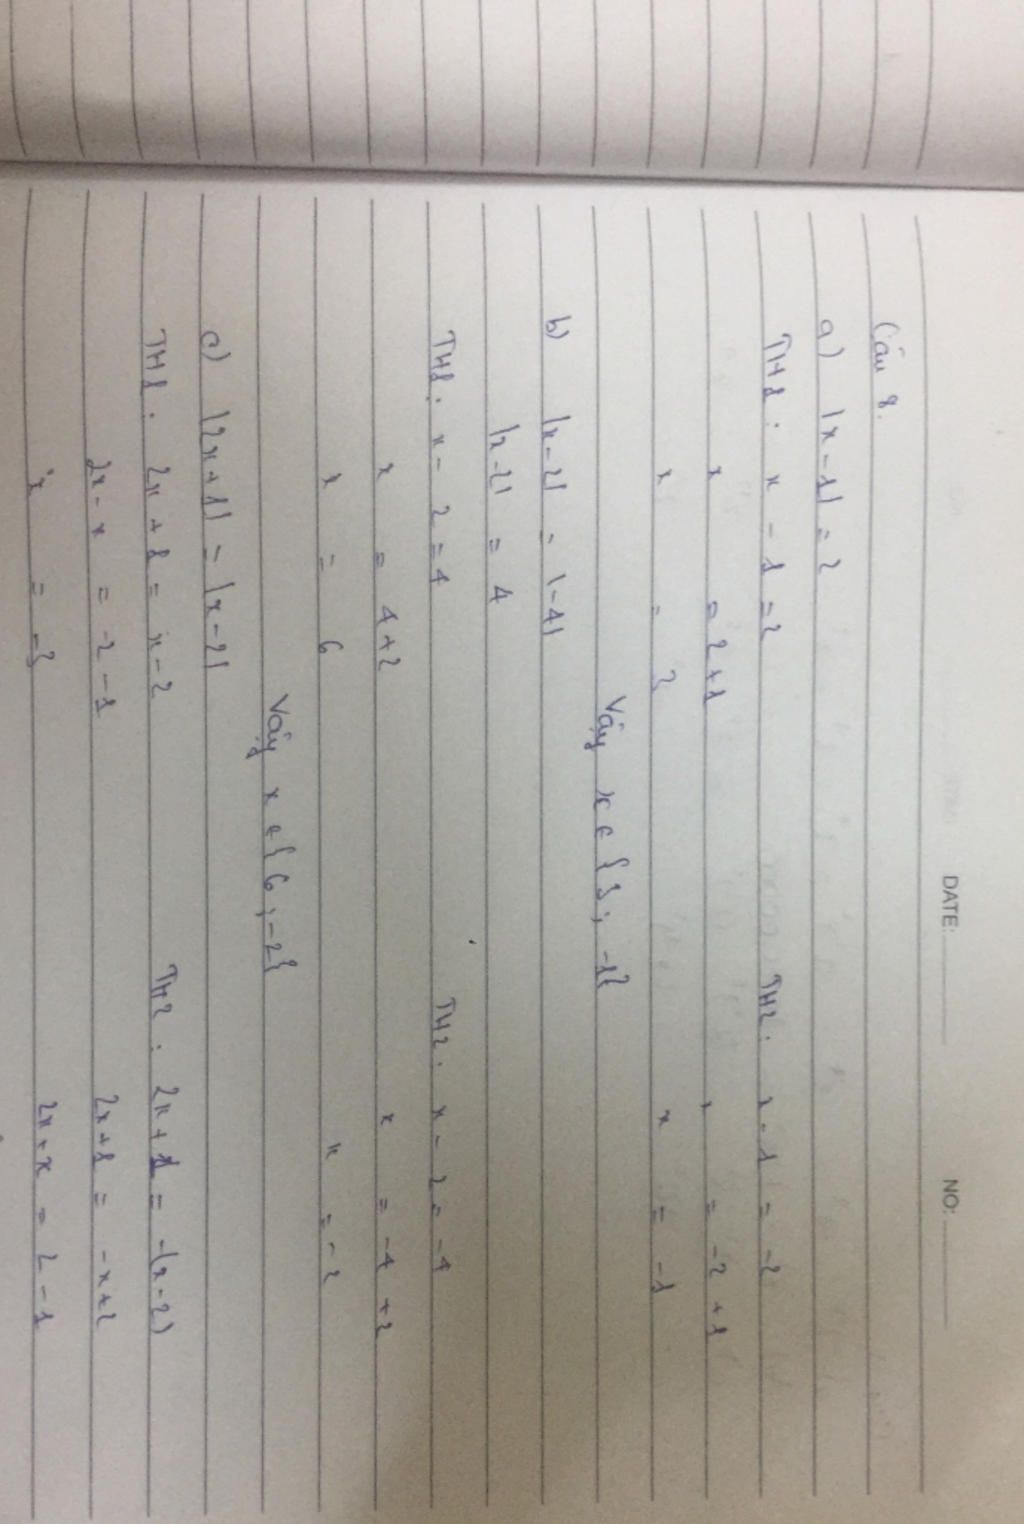 DATE: NO:
Câu 8.
a) |x-1| = 2
TH1: x - 1 = 2 TH2: x - 1 = -2
x = 2 + 1 x = -2 + 1
x = 3 x = -1
Vậy x ∈ {3; -1}
b) |x-2| = |-4|
|x-2| = 4
TH1: x - 2 = 4 TH2: x - 2 = -4
x = 4+2 x = -4 +2
x = 6 x = -2
Vậy x ∈ {6; -2}
c) |2x+1| = |x-2|
TH1: 2x + 1 = x - 2 TH2: 2x+1 = -(x-2)
2x - x = -2 - 1 2x+1 = -x+2
x = -3 2x+x = 2 - 1